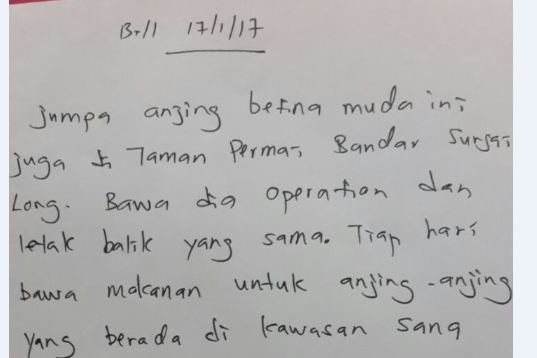 Bill 17/1/17
jumpa anjing betina muda ini
juga di Taman Permai, Bandar Sungai
Long. Bawa dia operation dan
letak balik yang sama. Tiap hari
bawa makanan untuk anjing-anjing
yang berada di kawasan sana